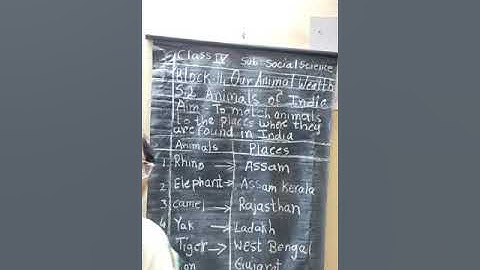 Class IV Sub-Social Science
Block 11, Our Animal Wealth
5.2 Animals of India
Aim - To match animals
to the places where they
are found in India
Animals Places
1 Rhino → Assam
2 Elephant → Assam Kerala
3 Camel → Rajasthan
4 Yak → Ladakh
Tiger → West Bengal
Lion Gujarat